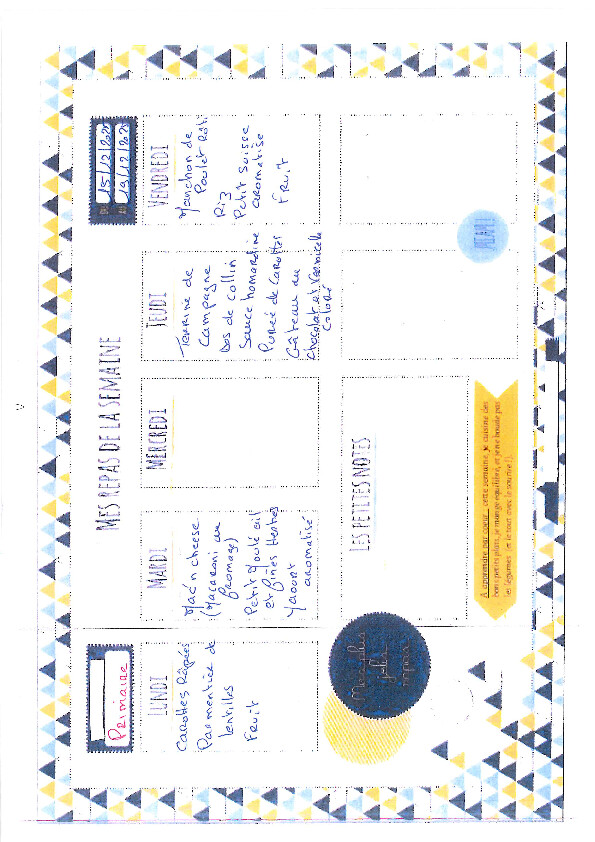 Primaire
MES REPAS DE LA SEMAINE
15/12/2025
19/12/2025
LUNDI
Carottes râpées
Parmentier de
lentilles
Fruit
MARDI
Mac'n cheese
(Macaroni au
fromage)
Petit Moulé ail
et fines Herbes
Yaourt
aromatisé
MERCREDI
JEUDI
Terrine de
Campagne
Dos de collin
Sauce homardine
Purée de Carottes
Gâteau au
chocolat et Vermicelle
coloré
VENDREDI
Manchon de
Poulet Roti
Riz
Petit Suisse
aromatisé
Fruit
Mes plus
jolis
repas
LES PETITES NOTES
MIAM!
A apprendre par coeur : cette semaine, je cuisine des
bons petits plats, je mange équilibré, et je ne boude pas
les légumes (et le tout avec le sourire !).